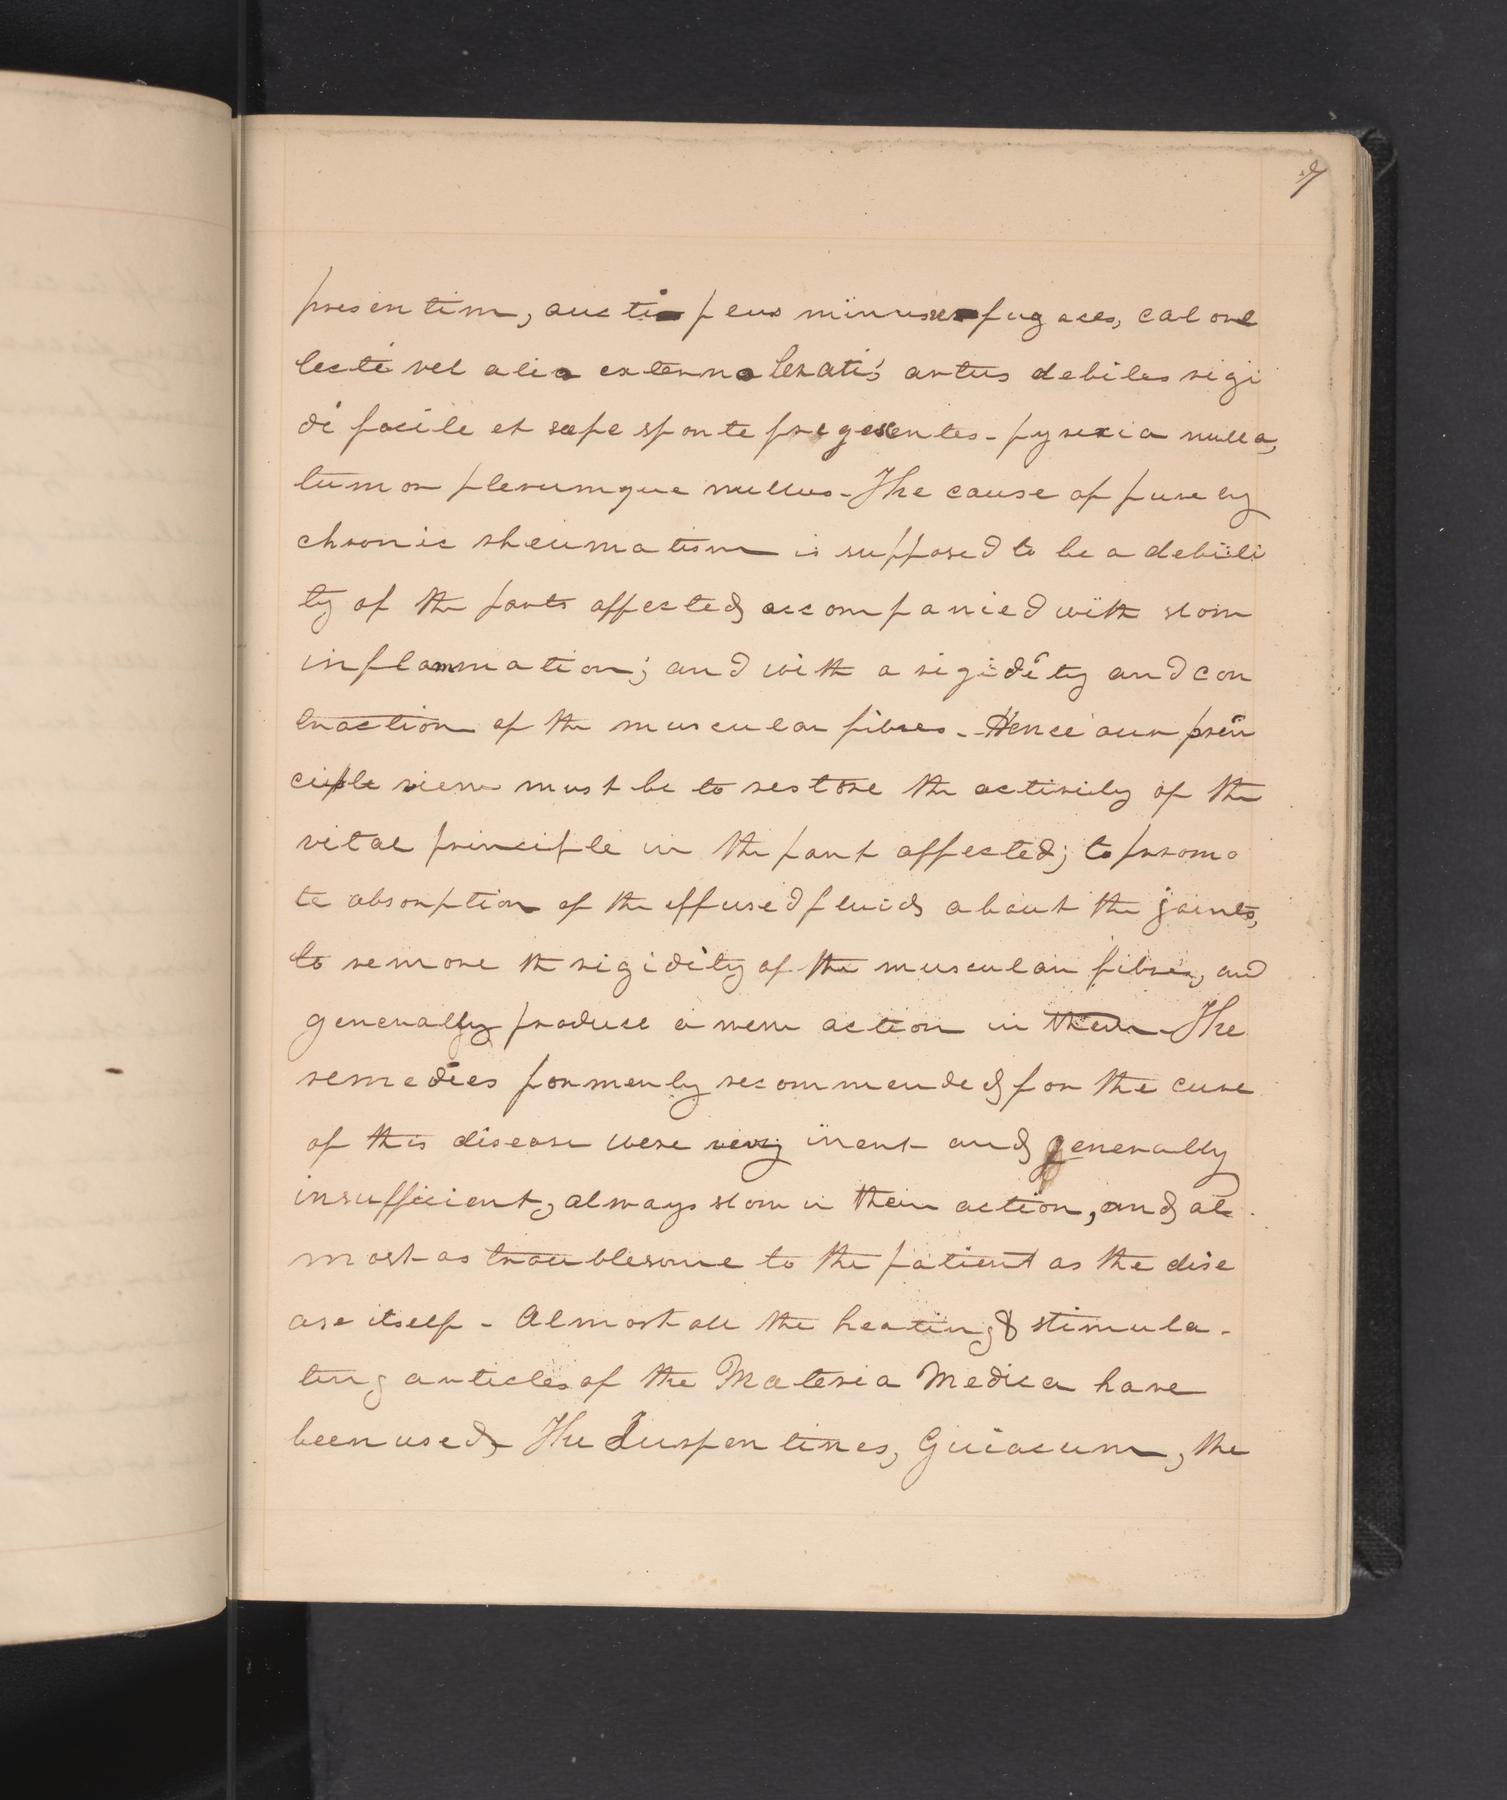 presentim, aucti plus minus fugaces, calore
lecti vel alia externa levati; artus debiles rigi
di facile et sæpe sponte frigescentes - pyrexia nulla,
tumor plerumque nullus - The cause of purely
chronic rheumatism is supposed to be a debili
ty of the parts affected accompanied with slow
inflammation; and with a rigidity and con
traction of the muscular fibres - Hence our prin
ciple view must be to restore the activity of the
vital principle in the part affected; to promo
te absorption of the effused fluids about the joints,
to remove the rigidity of the muscular fibres, and
generally produce a new action in them - The
remedies formerly recommended for the cure
of this disease were very inert and generally
insufficient, always slow in their action, and al -
most as troublesome to the patient as the dise
ase itself - Almost all the heating & stimula -
ting articles of the Materia Medica have
been used. The Turpentines, Guiacum, the